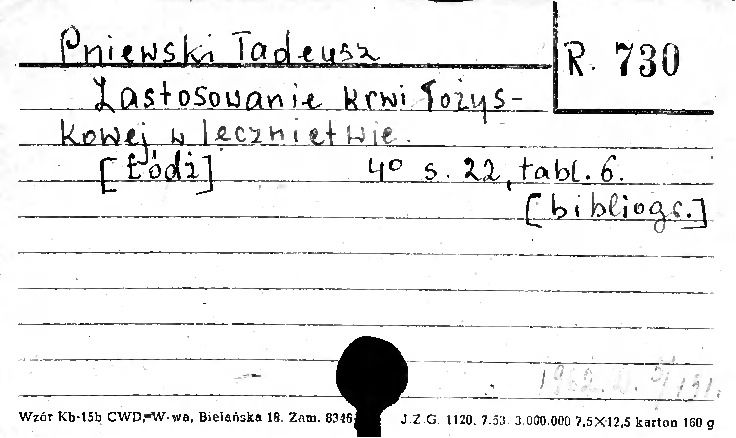 Pniewski Tadeusz
R. 730
Zastosowanie krwi łożys-
kowej w lecznictwie.
[Łódź] 4° s. 22, tabl. 6.
[bibliogr.]
1962.
Wzór Kb-15b CWD, W-wa, Bielańska 18. Zam. 8346 J.Z.G. 1120. 7.53. 3.000.000 7,5×12,5 karton 160 g